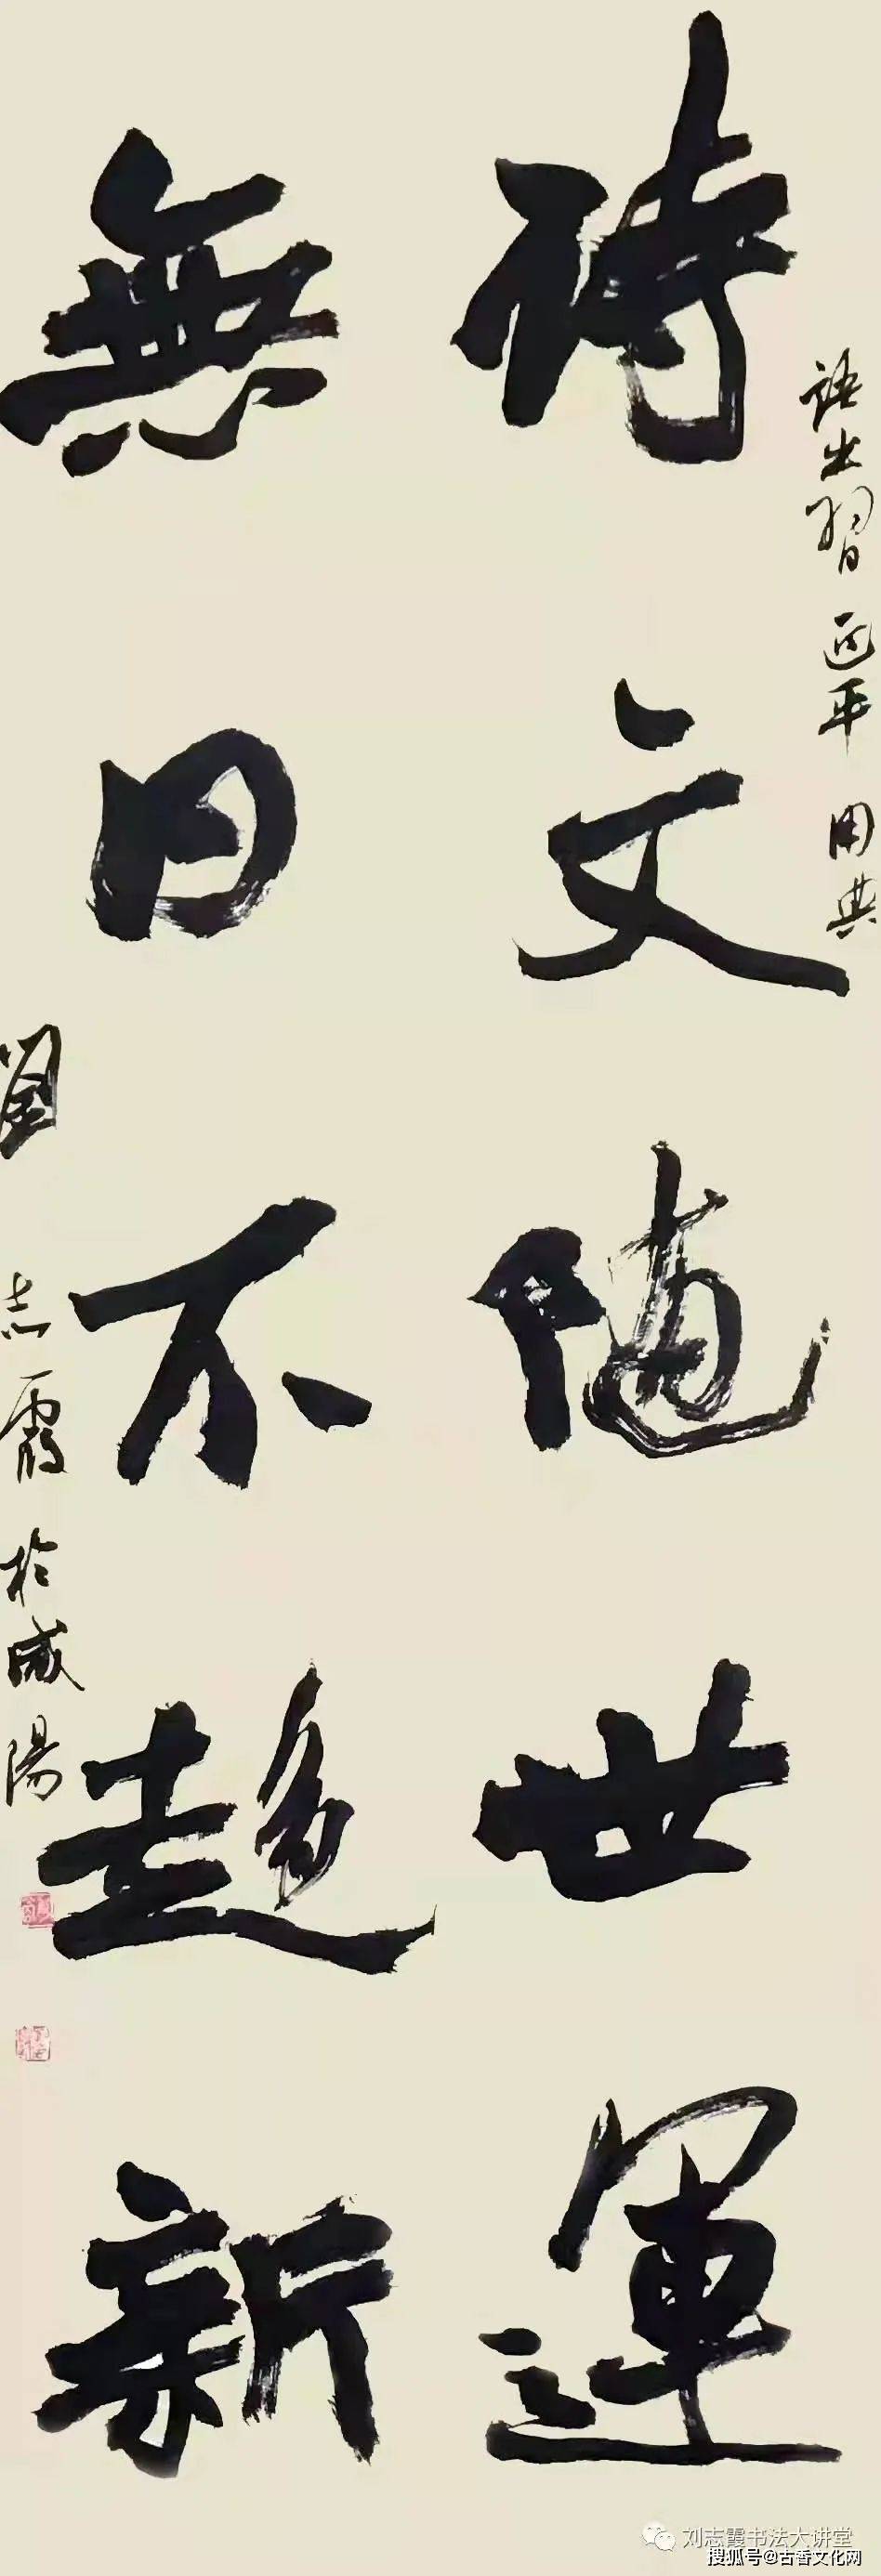 語出習近平用典
詩文隨世運
無日不趍新
劉志霞於咸陽
刘志霞书法大讲堂
搜狐号@古香文化网